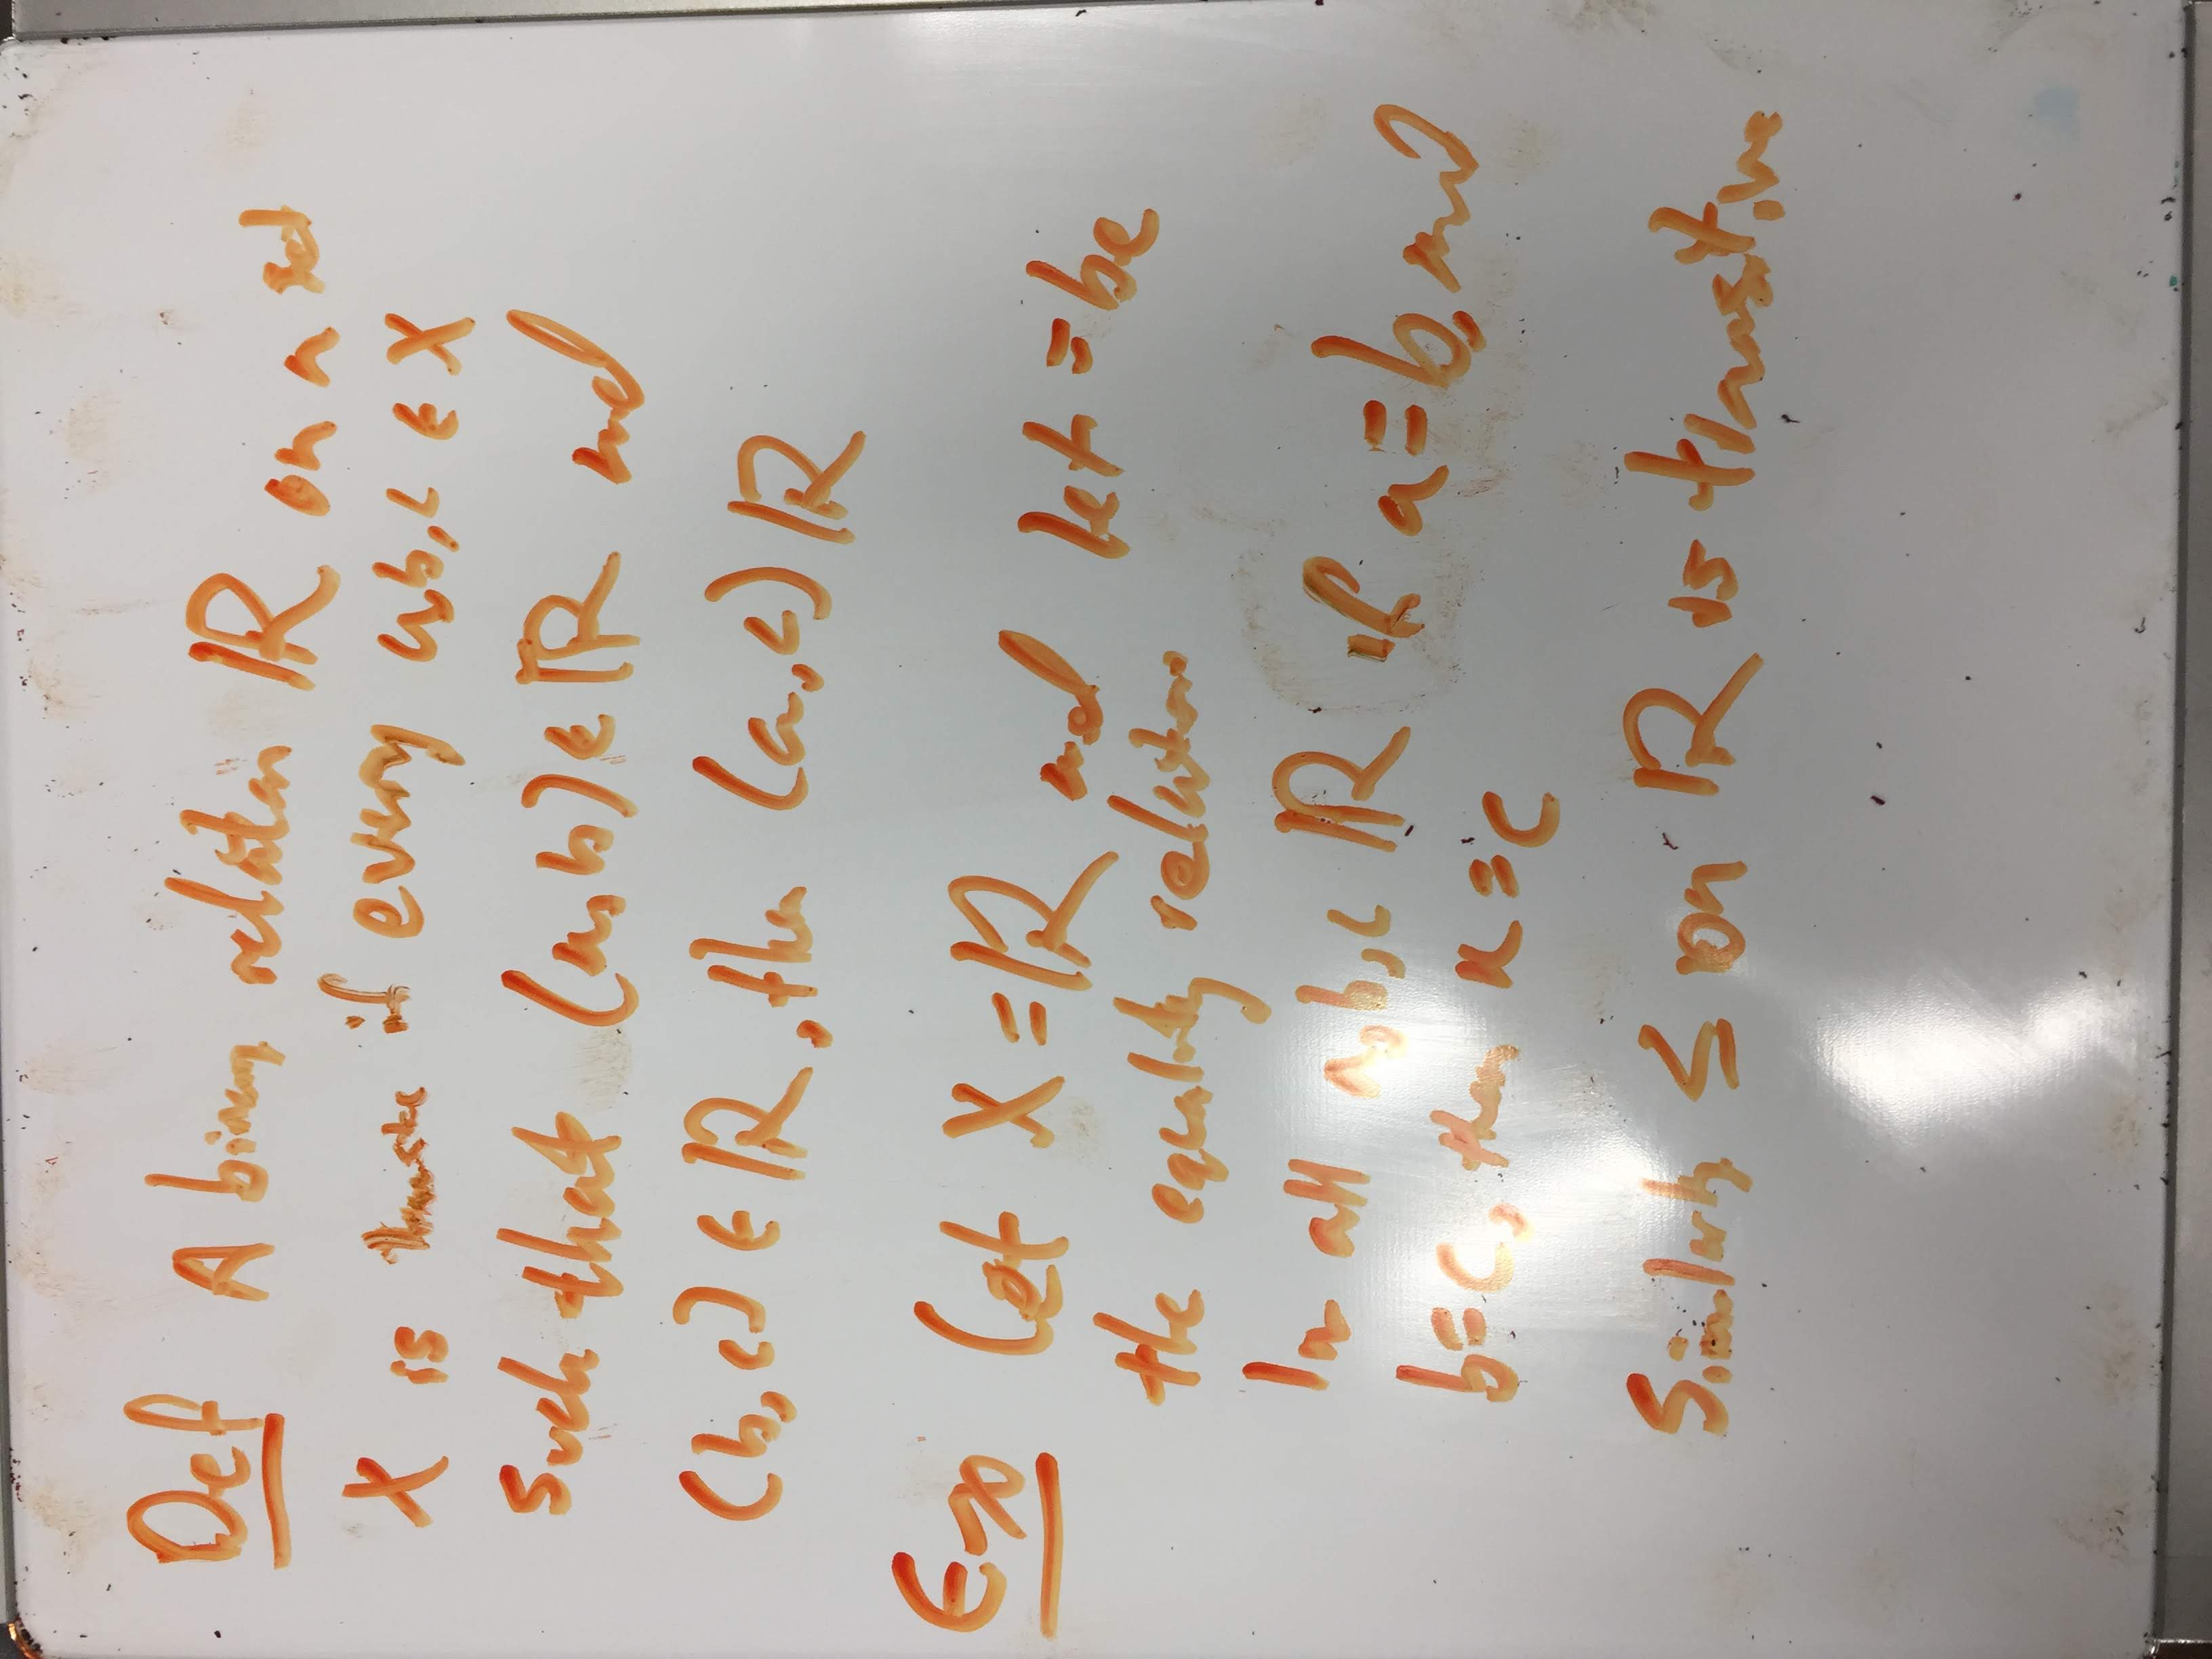 Def A binary relation ℝ on a set
X is transitive if every a,b,c ∈ X
such that (a,b) ∈ ℝ and
(b,c) ∈ ℝ, then (a,c) ℝ
Ex Let X = ℝ and let = be
the equality relation
In all a,b,c ℝ if a=b, and
b=c, then a=c
Similarly ≤ on ℝ is transitive